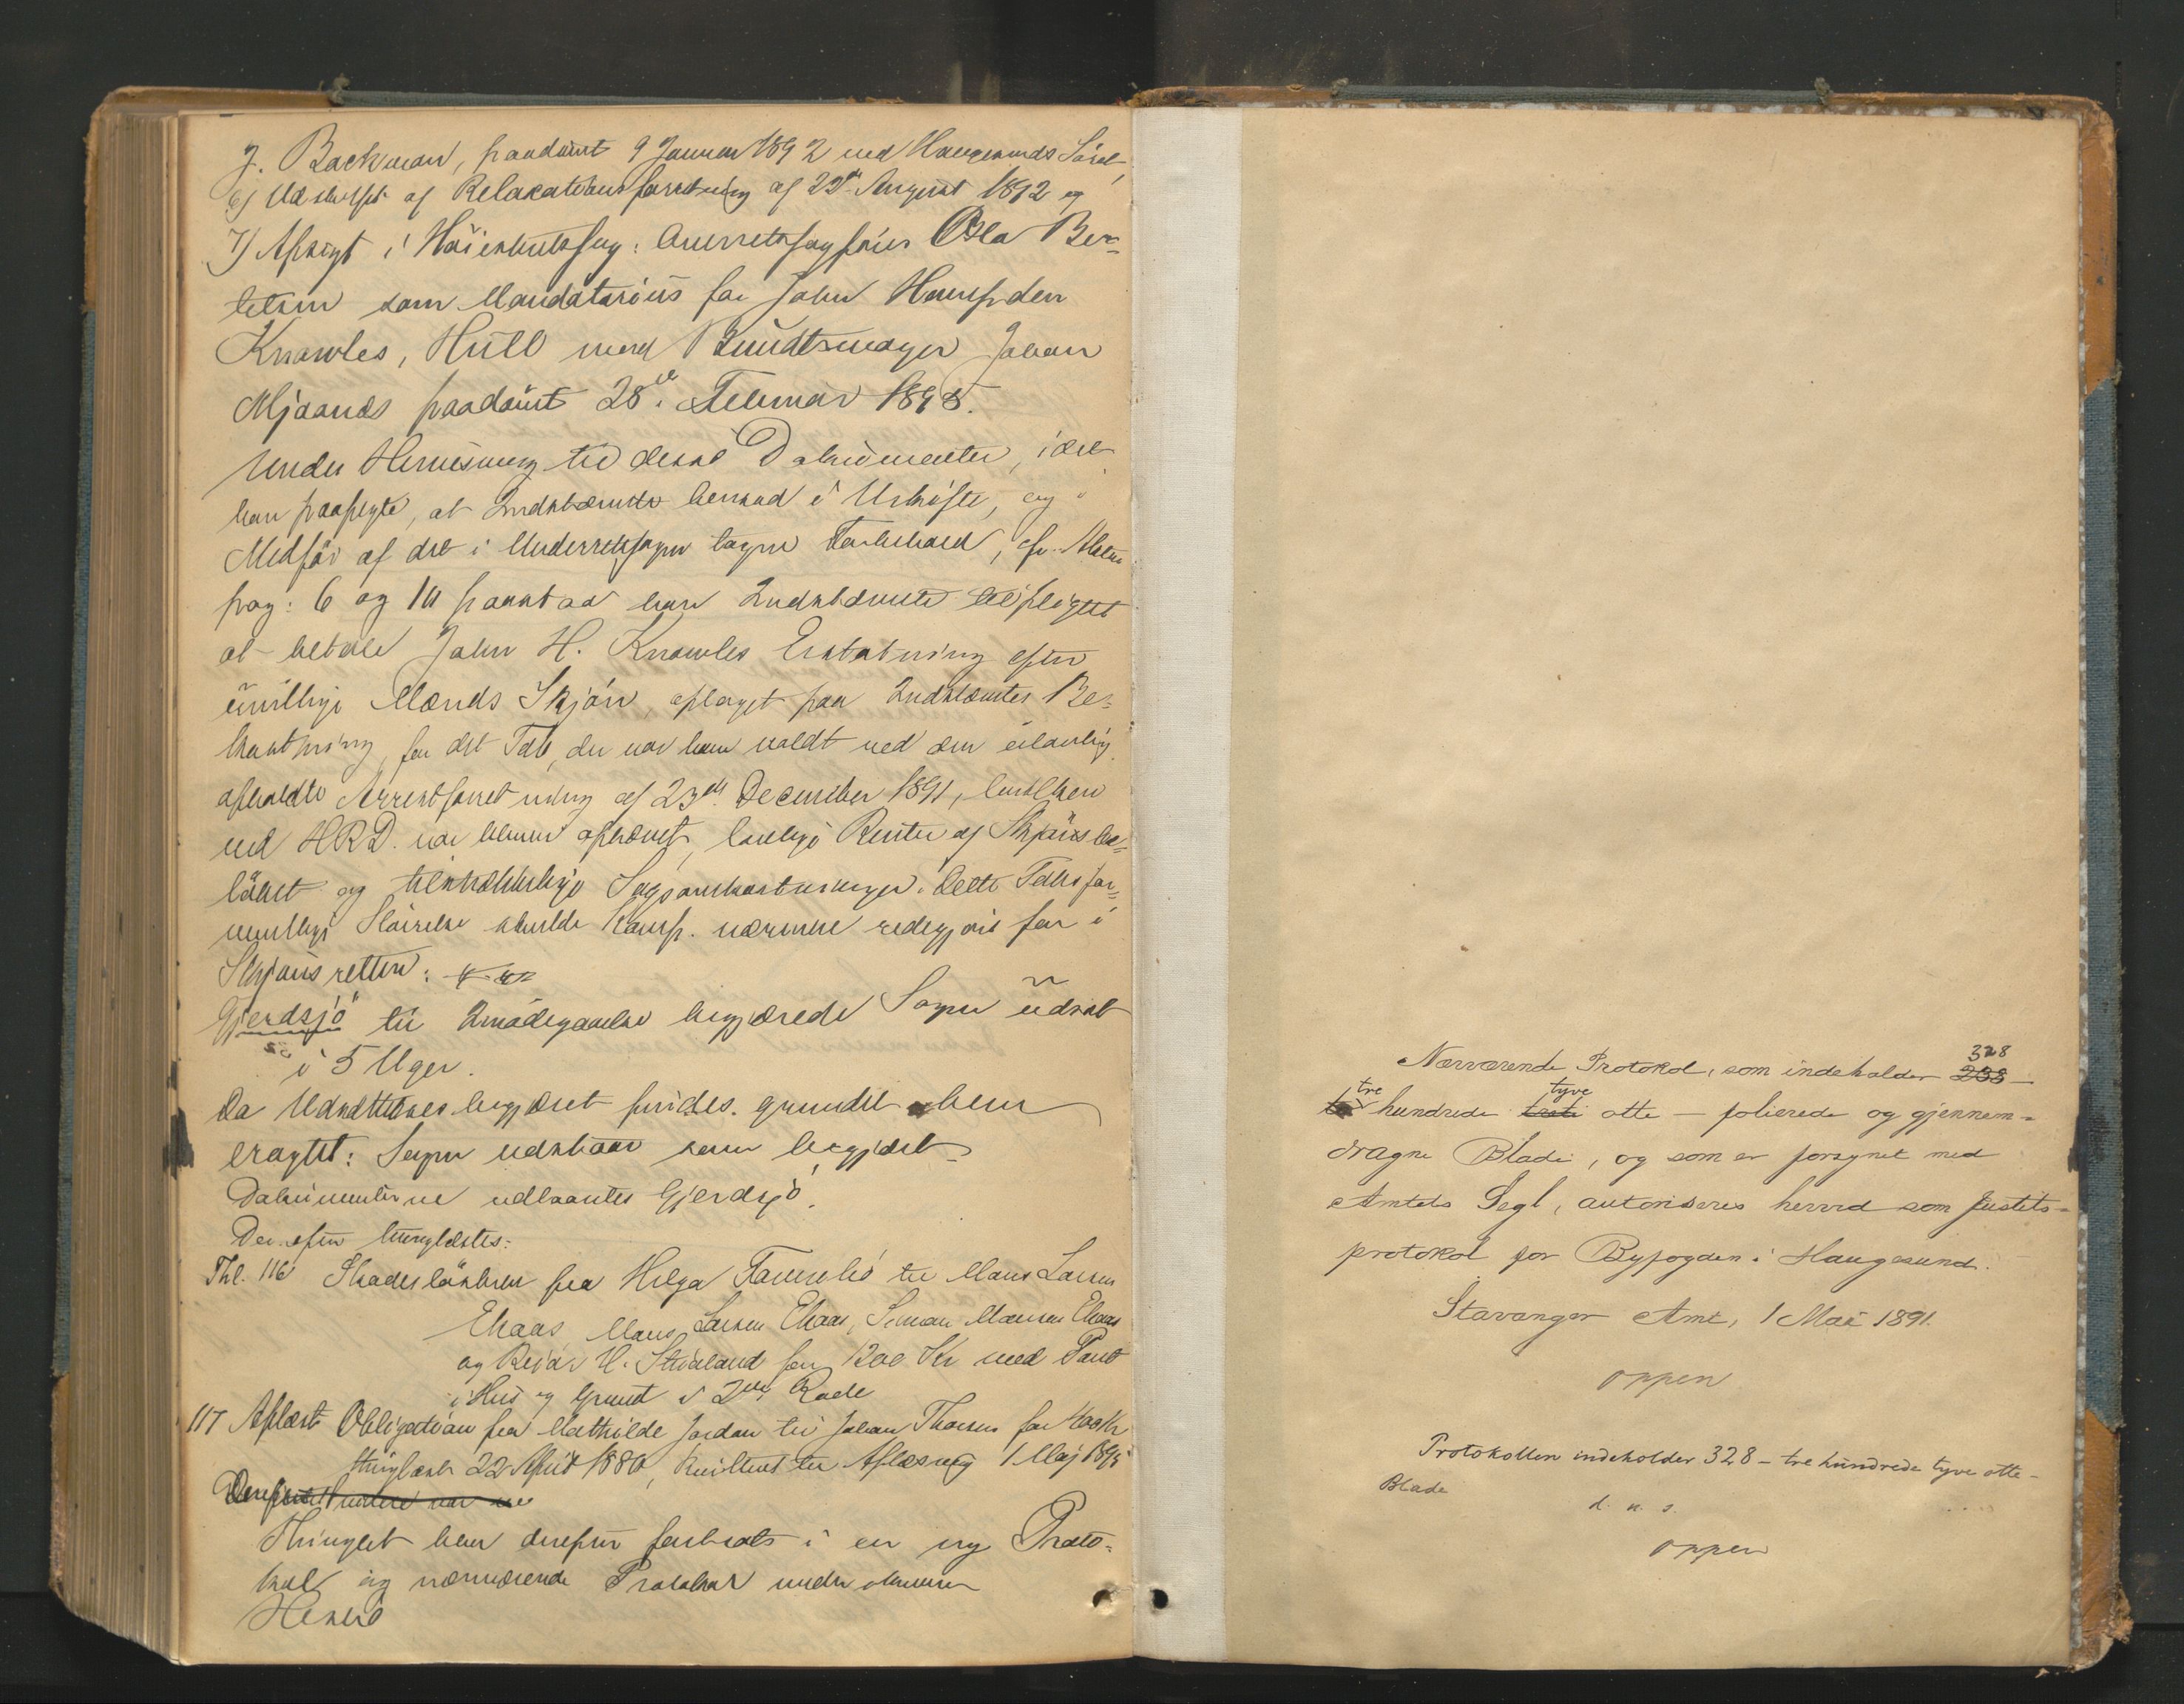 J. Backman, paadømt 9 Januar 1892 ved Haugesunds Søret,
6) Udskrift af Relaxationsforretning af 22de August 1892 og
7) Afsigt i Höiesteretssag: Overretssagfører Ola Ber-
telsen som Mandatarius for John Hampden
Knowles, Hull mod Bundtmager Johan
Mjaanes paadømt 28de Februar 1895.
Under Henvisning til disse Dokumenter, idet
han paapegte, at Indstævnte havde i
Medför af det i Underretssagen tagne Forbehold, cfr. Akten
pag: 6 og 10 paastod han Indstævnte tilpligtet
at betale John H. Knowles Erstatning efter
uvillige Mænds Skjön, optaget paa Indstævntes Be-
kostning, for det Tab, der var ham voldt ved den ulovlig
afholdte Arrestforretning af 23de December 1891, hvilken
ved HRD. var bleven ophævet, lovlige Renter af Skjöns be-
löbet og tilstrækkelige Sagsomkostninger. Dette Tabs for-
mentlige Störrelse skulde Komp. nærmere redegjöre for i
Skjönsretten.
Gjerdsjö til Imödegaaelse begjærede Sagen udsat
i 5 Uger.
Da Udsættelsesbegjæret findes grundet blev
eragtet: Sagen udstaar som begjæret
Dokumenterne udlaantes Gjerdsjö.
Derefter tinglæstes:
Thl. 116 Skadeslösbrev fra Helga til Mons Larsen
Ekaas, Mons Larsen Ekaas, Simon Monsen Ekaas
og H. for 1200 Kr med Pant
i Hus og Grund i 2den Rode
117 Aflæst Obligation fra Mathilde Jordan til Johan Thorsen for 400 Kr
thinglæst 22 April 1880, kvitteret til Aflæsning 1 Maj 1895
Derefter
Thinget blev derefter fortsat i en ny Proto-
kol og nærværende Protokol
Nærværende Protokol, som indeholder 328 238 -
tre to hundrede tyve otte - folierede og gjennem-
dragne Blade, og som er forsynet med
Amtets Segl, autoriseres herved som Justits-
protokol for Byfogden i Haugesund.
Stavanger Amt, 1 Mai 1891.
Oppen
Protokollen indeholder 328 - tre hundrede tyve otte -
Blade
d. u. s.
Oppen